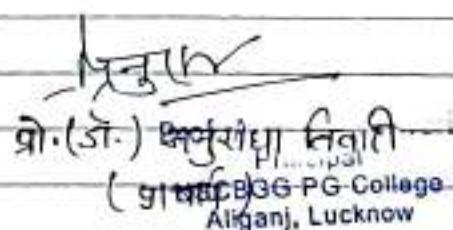 प्रो. (डॉ.) अनुराधा तिवारी
Principal
CBGG PG College
Aliganj, Lucknow